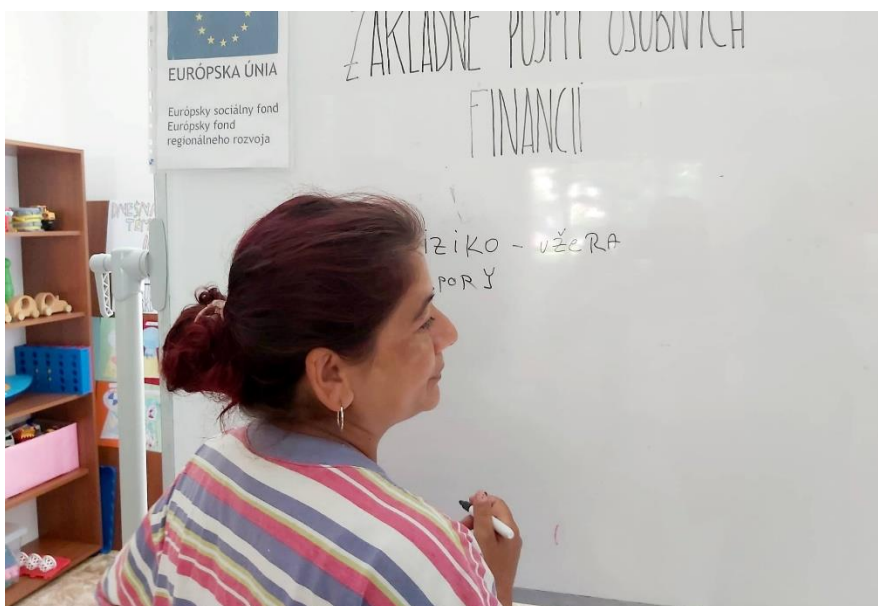 EURÓPSKA ÚNIA
Európsky sociálny fond
Európsky fond
regionálneho rozvoja
ZÁKLADNÉ POJMY OSOBNÝCH
FINANCIÍ
IZIKO - UŽERA
PORY
DNEŠNÁ